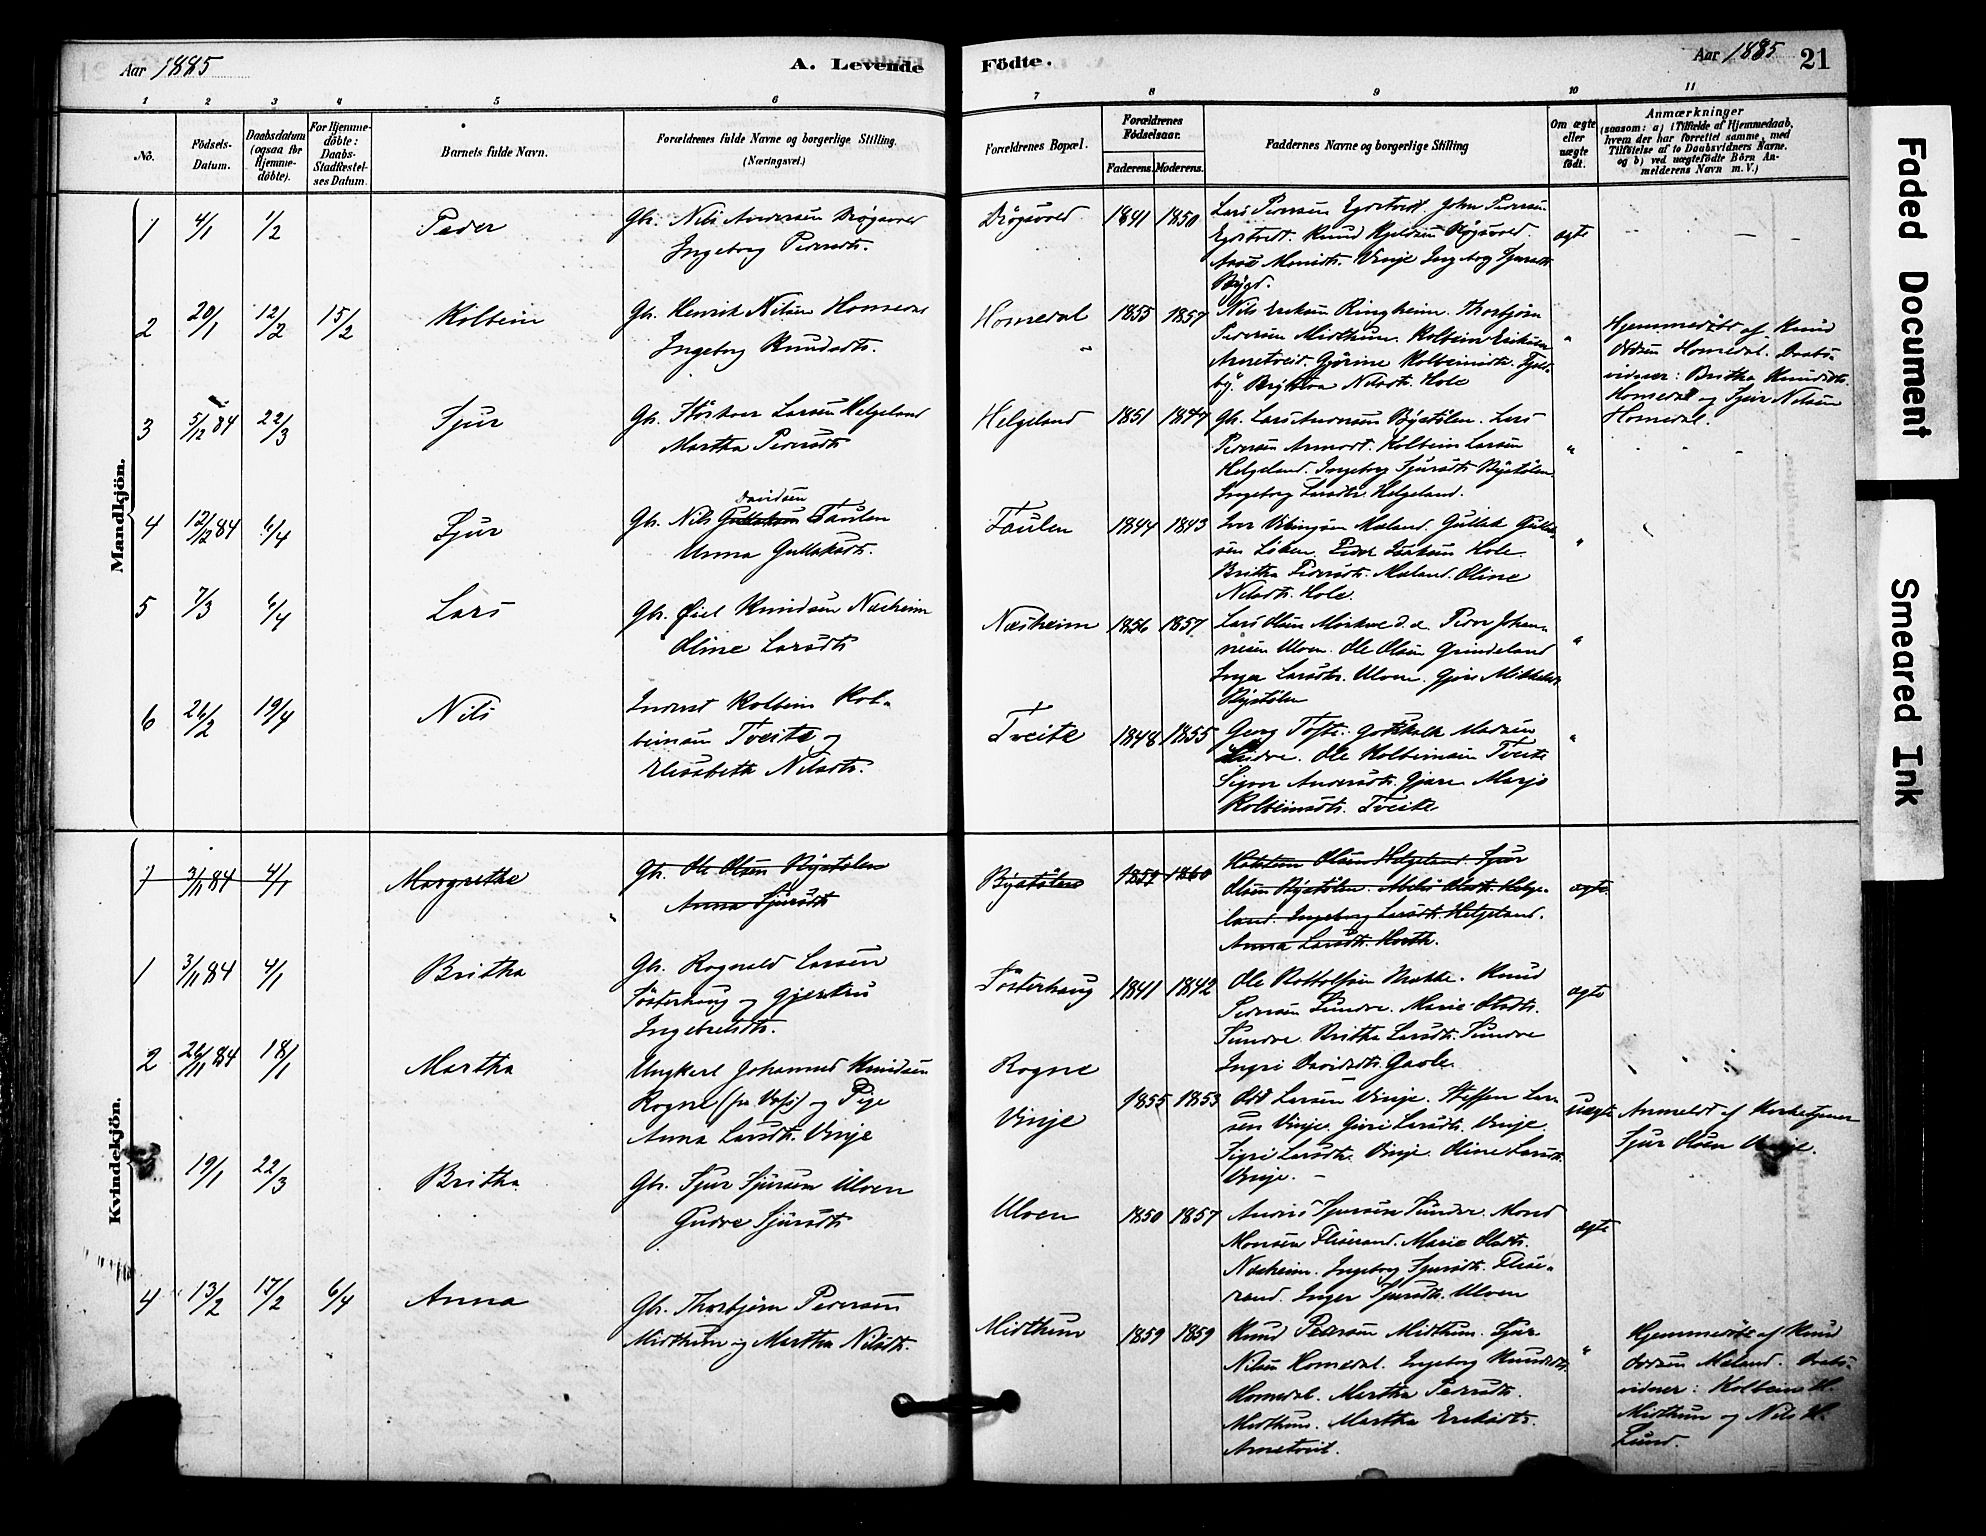 Aar 1885
A. Levende
Födte.
Aar 1885
21
1 2 3 4 5 6 7 8 9 10 11
No.
Födsels-
Datum.
Daabsdatum
(ogsaa for
Hjemme-
döbte).
For Hjemme-
döbte:
Daabs-
Stadfæstel-
ses Datum.
Barnets fulde Navn.
Forældrenes fulde Navne og borgerlige Stilling.
(Næringsvei.)
Forældrenes Bopæl.
Forældrenes
Födselsaar.
Faderens. Moderens.
Faddernes Navne og borgerlige Stilling
Om ægte
eller
uægte
födt.
Anmærkninger
(saasom: a) i Tilfælde af Hjemmedaab,
hvem der har forrettet samme, med
Tilföielse af to Daabsvidners Navne.
og b) ved uægtefödte Börn An-
melderens Navn m. V.)
Mandkjön.
1 4/1 1/2 Peder
Gbr. Nils Andersen
Ingeborg Pedersdtr.
1841 1850
Lars Pedersen Egdetveit. John Pedersen
Egdetveit. Knud
Vinje Ingeborg Sjursdtr.
Bygd.
ægte
2 20/1 12/2 15/2 Kolbein
Gbr. Henrik Nilsen Homedal
Ingeborg Knudsdtr.
Homedal 1855 1857
Nils Eriksen Ringheim. Thorbjörn
Pedersen Midthun. Kolbein Eriksen
Arnetveit. Kolbeinsdtr.
Nilsdtr. Hole
"
Hjemmedöbt af Knud
Oddsen Homedal. Daabs-
vidner: Britha Knudsdtr.
Homedal og Sjur Nilsen
Homedal.
3 5/12 84 22/3 Sjur
Gbr. Störkaar Larsen Helgeland
Martha Pedersdtr.
Helgeland 1851 1847
Gbr. Lars Andersen Bystölen. Lars
Pedersen Armodt. Kolbein Larsen
Helgeland. Ingeborg Sjursdtr. Bystölen
Ingeborg Larsdtr. Helgeland.
"
4 12/12 84 6/4 Sjur
Davidsen
Gbr. Nils Gullaksen Taulen
Unna Gullaksdtr.
Taulen 1844 1843
Iver Vikingsen Maland. Gullak Gullak-
sen Löken. Peder Isaksen Hole
Britha Pedersdtr. Maland. Oline
Nilsdtr. Hole.
"
5 7/3 6/4 Lars
Gbr. Knudsen Næsheim
Oline Larsdtr.
Næsheim 1856 1857
Lars Olsen Mörkve d.e. Peder Johan-
nesen Ulven. Ole Olsen Grindeland
Inger Larsdtr. Ulven. Mikkelsdtr.
Bystölen
"
6 26/2 19/4 Nils
Inderst Kolbein Kol-
beinsen Tveite og
Elisabeth Nilsdtr.
Tveite 1848 1855
Georg Tofte. Gotskalk Madsen
Sundve. Ole Kolbeinsen Tveite
Andersdtr. Gjære Marjo
Kolbeinsdtr. Tveite
"
Kvindekjön.
1 3/11 84 4/1 Margrethe
Gbr. Ole Olsen Bystölen
Anna Sjursdtr.
Bystölen 1859 1860
Olsen Helgeland. Sjur
Olsen Bystölen. Olsdtr. Helge-
land. Ingeborg Larsdtr. Helgeland.
Anna Larsdtr.
ægte
1 3/11 84 4/1 Britha
Gbr. Rognald Larsen
Tösterhaug og Gjertru
Ingebretsdtr.
Tösterhaug 1841 1842
Ole Knud
Pedersen Sundve. Marie Olsdtr.
Sundve. Britha Larsdtr. Sundve
Ingri Davidsdtr. Gavle.
ægte
2 26/11 84 18/1 Martha
Ungkarl Johannes Knudsen
Rogne (fra Voss) og Pige
Anna Larsdtr. Vinje
Rogne
Vinje
1855 1853
Odd Larsen Vinje. Steffen Lar-
sen Vinje. Guri Larsdtr. Vinje.
Sigri Larsdtr. Vinje. Oline Larsdtr.
Vinje.
uægte
Anmeldt af Kirketjener
Sjur Olsen
19/1 22/3 Britha
Gbr. Sjur Sjursen Ulven
Gudve Sjursdtr.
Ulven 1850 1857
Anders Sjursen Sundve. Mons
Monsen Flisrand. Marie Olsdtr.
Næsheim. Ingeborg Sjursdtr. Flis-
rand. Inger Sjursdtr. Ulven
ægte
4 13/2 17/2 6/4 Anna
Gbr. Thorbjörn Pedersen
Midthun og Martha Nilsdtr.
Midthun 1859 1859
Knud Pedersen Midthun. Sjur
Nilsen Homedal. Ingeborg Knudsdtr.
Homedal. Martha Pedersdtr.
Midthun. Martha Eriksdtr.
Arnetveit.
"
Hjemmedöbt af Knud
Oddsen Maland. Daabs-
vidner: Kolbein
Midthun og Nils
Lund.
Faded Document
Smeared Ink